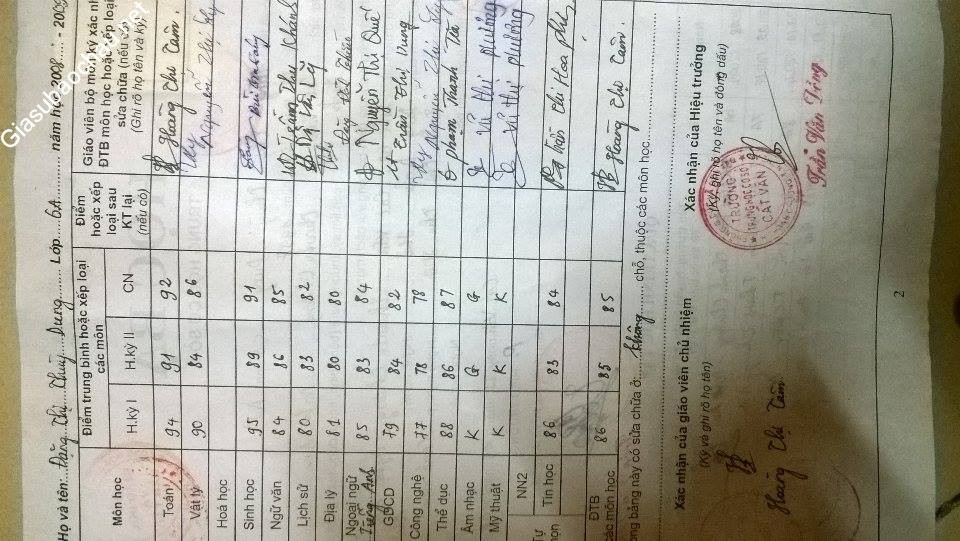 Giasubaochau.net
Họ và tên: Đặng Thị Thùy Dung Lớp 6A năm học 2008 - 2009
Môn học
Điểm trung bình hoặc xếp loại các môn
Điểm hoặc xếp loại sau KT lại (nếu có)
Giáo viên bộ môn ký xác nhận ĐTB môn học hoặc xếp loại sửa chữa (nếu có)
(Ghi rõ họ tên và ký)
H.kỳ I H.kỳ II CN
Toán 94 91 92 Hoàng Thị Tâm
Vật lý 90 84 86 Nguyễn Thị
Hoá học
Sinh học 95 89 91
Ngữ văn 84 86 85 Khánh
Lịch sử 80 83 82 Lý
Địa lý 81 80 80
Ngoại ngữ Tiếng Anh 85 83 84 Nguyễn Thị Quế
GDCD 79 84 82 Trần Thị Dung
Công nghệ 77 78 78 Nguyễn Thị
Thể dục 88 86 87 Phạm Thanh
Âm nhạc K G G Vũ Thị Phương
Mỹ thuật K K K Vũ Thị Phương
Tự chọn
NN2
Tin học 86 83 84 Trần Thị Hoa
ĐTB các môn học 86 85 85 Hoàng Thị Tâm
Trong bảng này có sửa chữa ở: không chỗ, thuộc các môn học.
Xác nhận của giáo viên chủ nhiệm
(Ký và ghi rõ họ tên)
Hoàng Thị Tâm
Xác nhận của Hiệu trưởng
(Ký, ghi rõ họ tên và đóng dấu)
TRƯỜNG
TRUNG HỌC CƠ SỞ
CÁT VĂN
Trần Văn Dũng
2